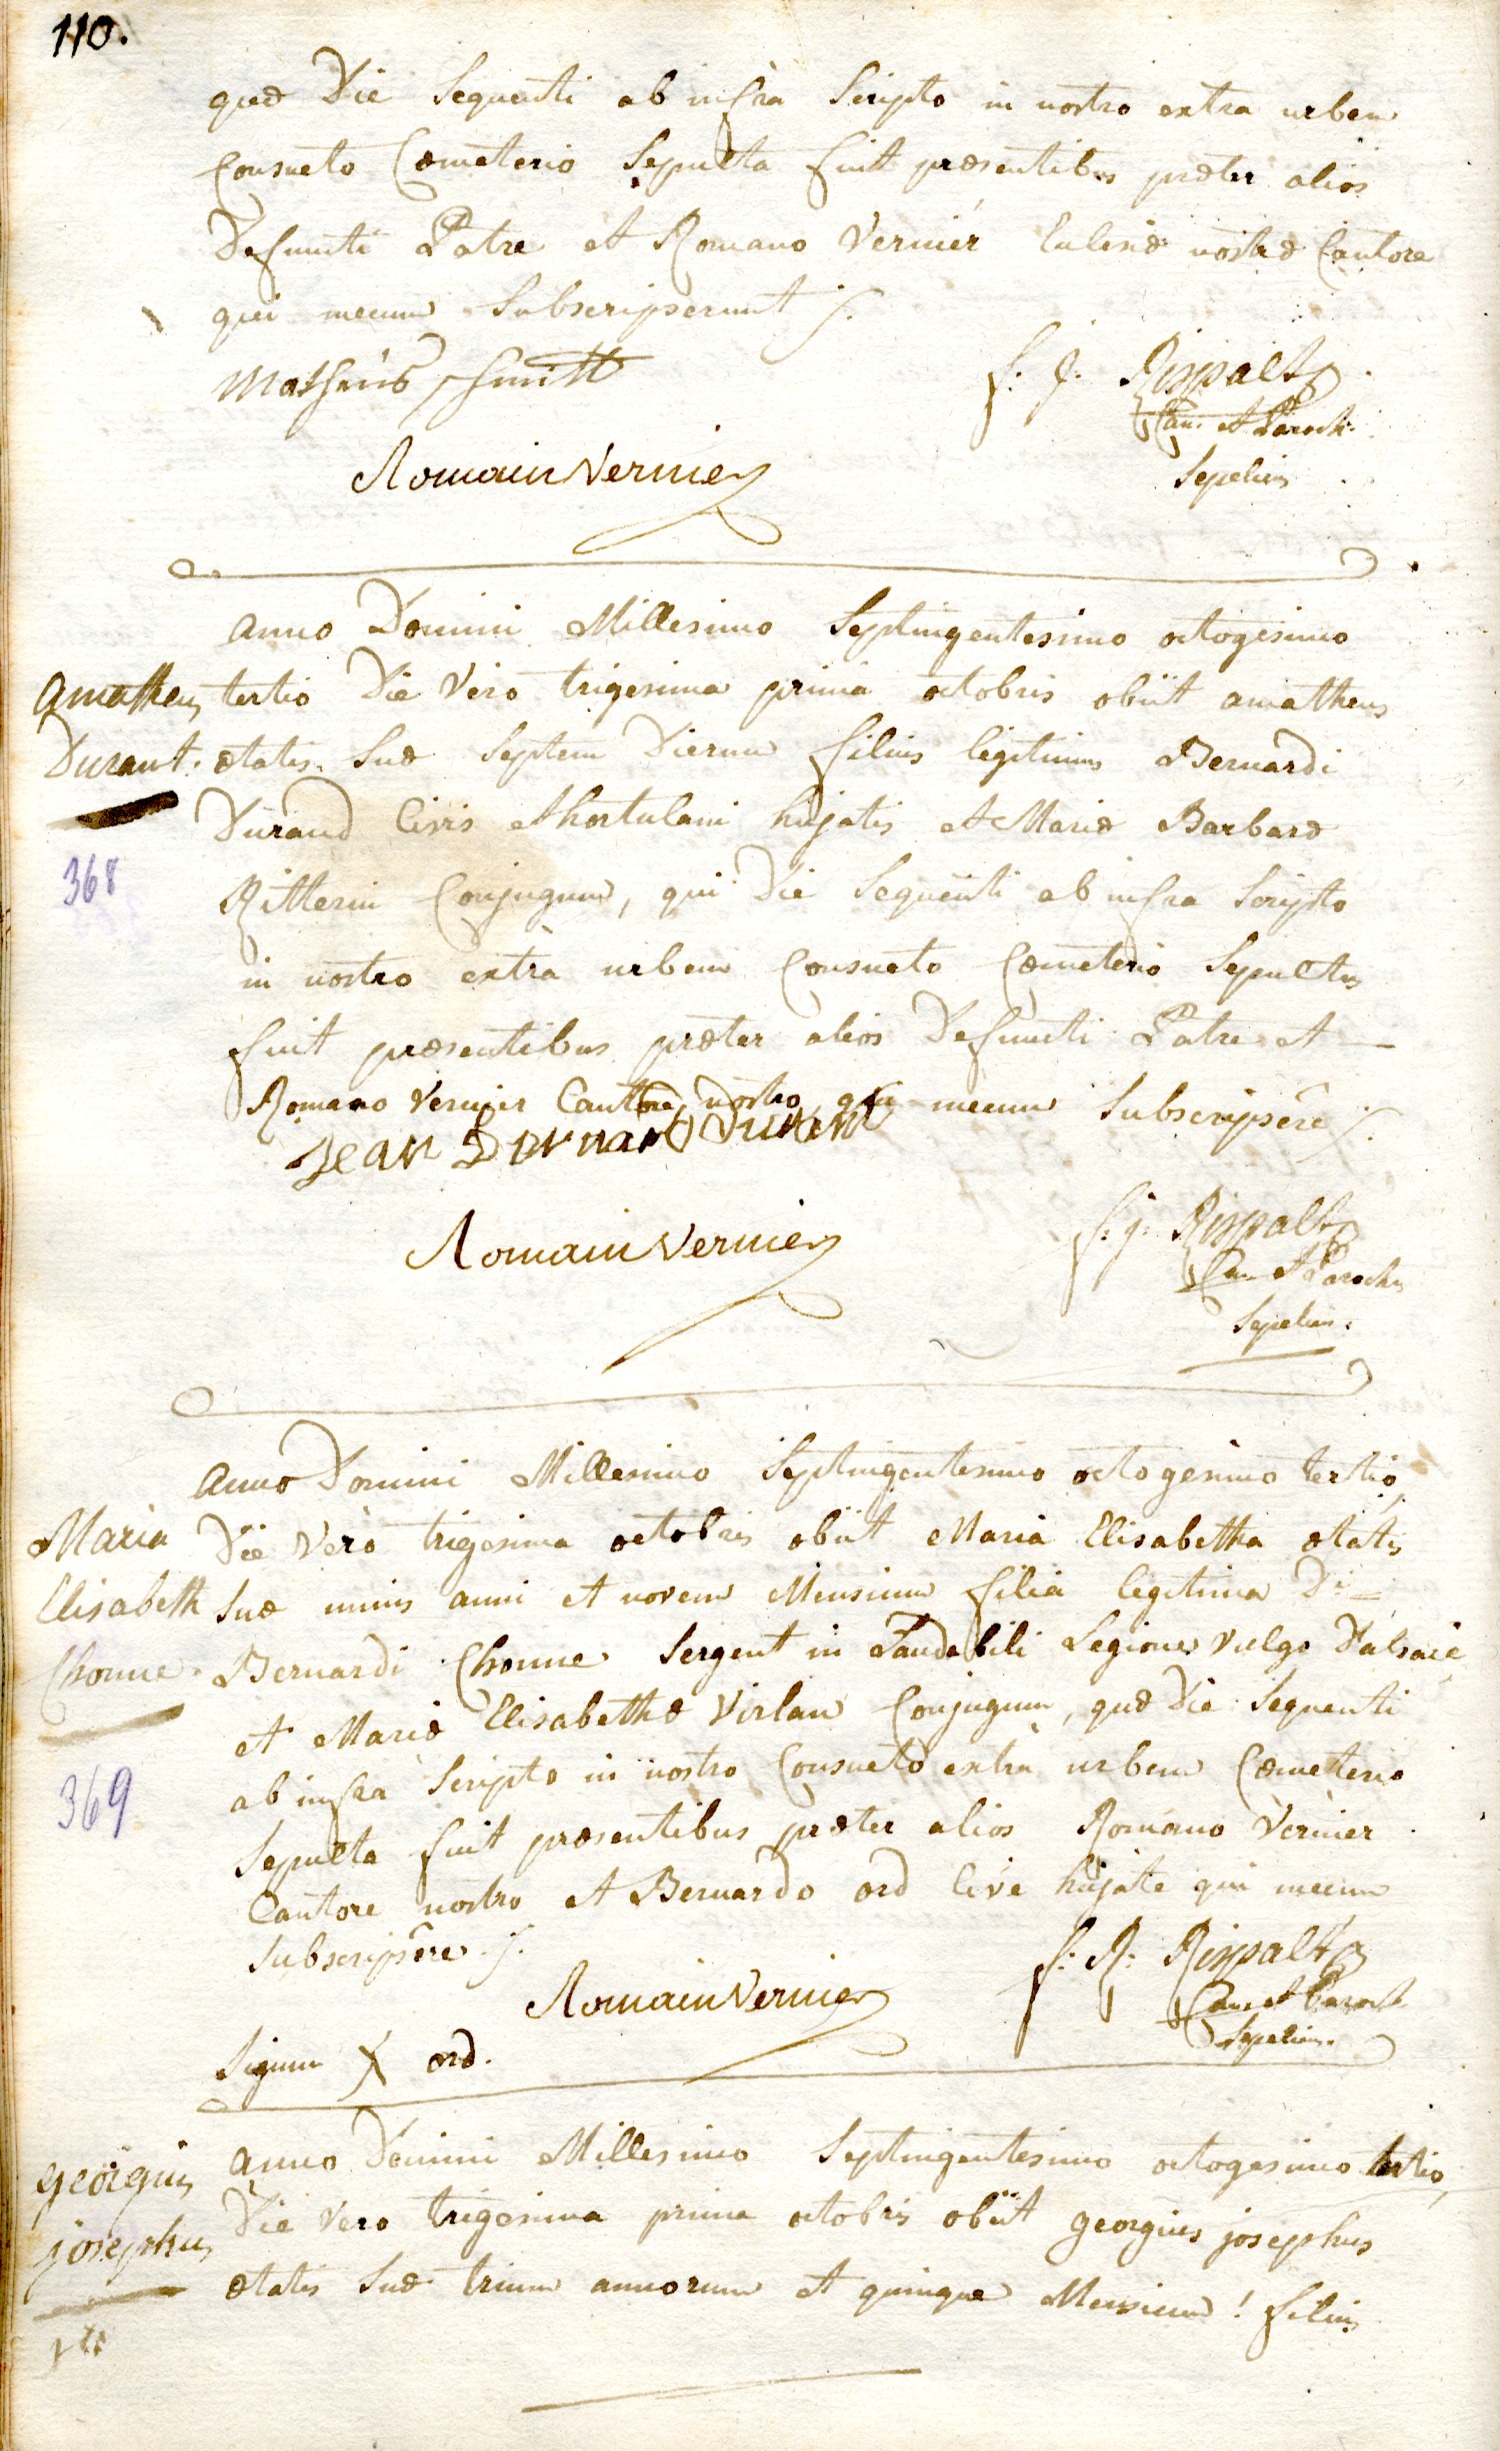 110.
quæ Die Sequenti ab infra Scripto in nostro extra urbem
Consueto Cœmeterio Sepulta fuit præsentibus præter alios
Defuncti Patre et Romano Vernier Eclesiæ nostræ Cantore
qui mecum Subscripserunt ./.
Matheus Schmitt
f. j. Rispalt
Can. et Paroch.
Sepeliens
Romain Vernier
anno Domini Millesimo Septingentesimo octogesimo
amatheus tertio Die Vero trigesima prima octobris obiit amatheus
Durant. ætatis Suæ Septem Dierum filius legitimus Bernardi
Durand Civis et hortulani hujatis et Mariæ Barbaræ
368
Ritterin Conjugum, qui Die Sequenti ab infra Scripto
in nostro extrà urbem Consueto Cœmeterio Sepultus
fuit præsentibus præter alios Defuncti Patre et
Romano Vernier Cantore nostro qui mecum Subscripsêre ./.
Jean Bernard Durent
f. j. Rispalt
Can et Parochus
Sepeliens.
Romain Vernier
anno Domini Millesimo Septingentesimo octogesimo tertio,
Maria Die Vero trigesima octobris obiit Maria Elisabetha ætatis
Elisabeth Suæ unius anni et novem Mensium filia legitima D:
Chonne. Bernardi Chonne Sergent in Laudabili Legione Vulgo D'alsace
et Mariæ Elisabethæ Virlan Conjugum, quæ Die Sequenti
369
ab infra Scripto in nostro Consueto extrà urbem Cœmeterio
Sepulta fuit præsentibus præter alios Romano Vernier
Cantore nostro et Bernardo ord Cive hujate qui mecum
Subscripsêre ./.
f. j. Rispalt
Can et Paroch
Sepeliens.
Romain Vernier
Signum X ord.
georgius anno Domini Millesimo Septingentesimo octogesimo tertio,
josephus Die Vero trigesima prima octobris obiit georgius josephus
ætatis Suæ trium annorum et quinque Mensium ! filius